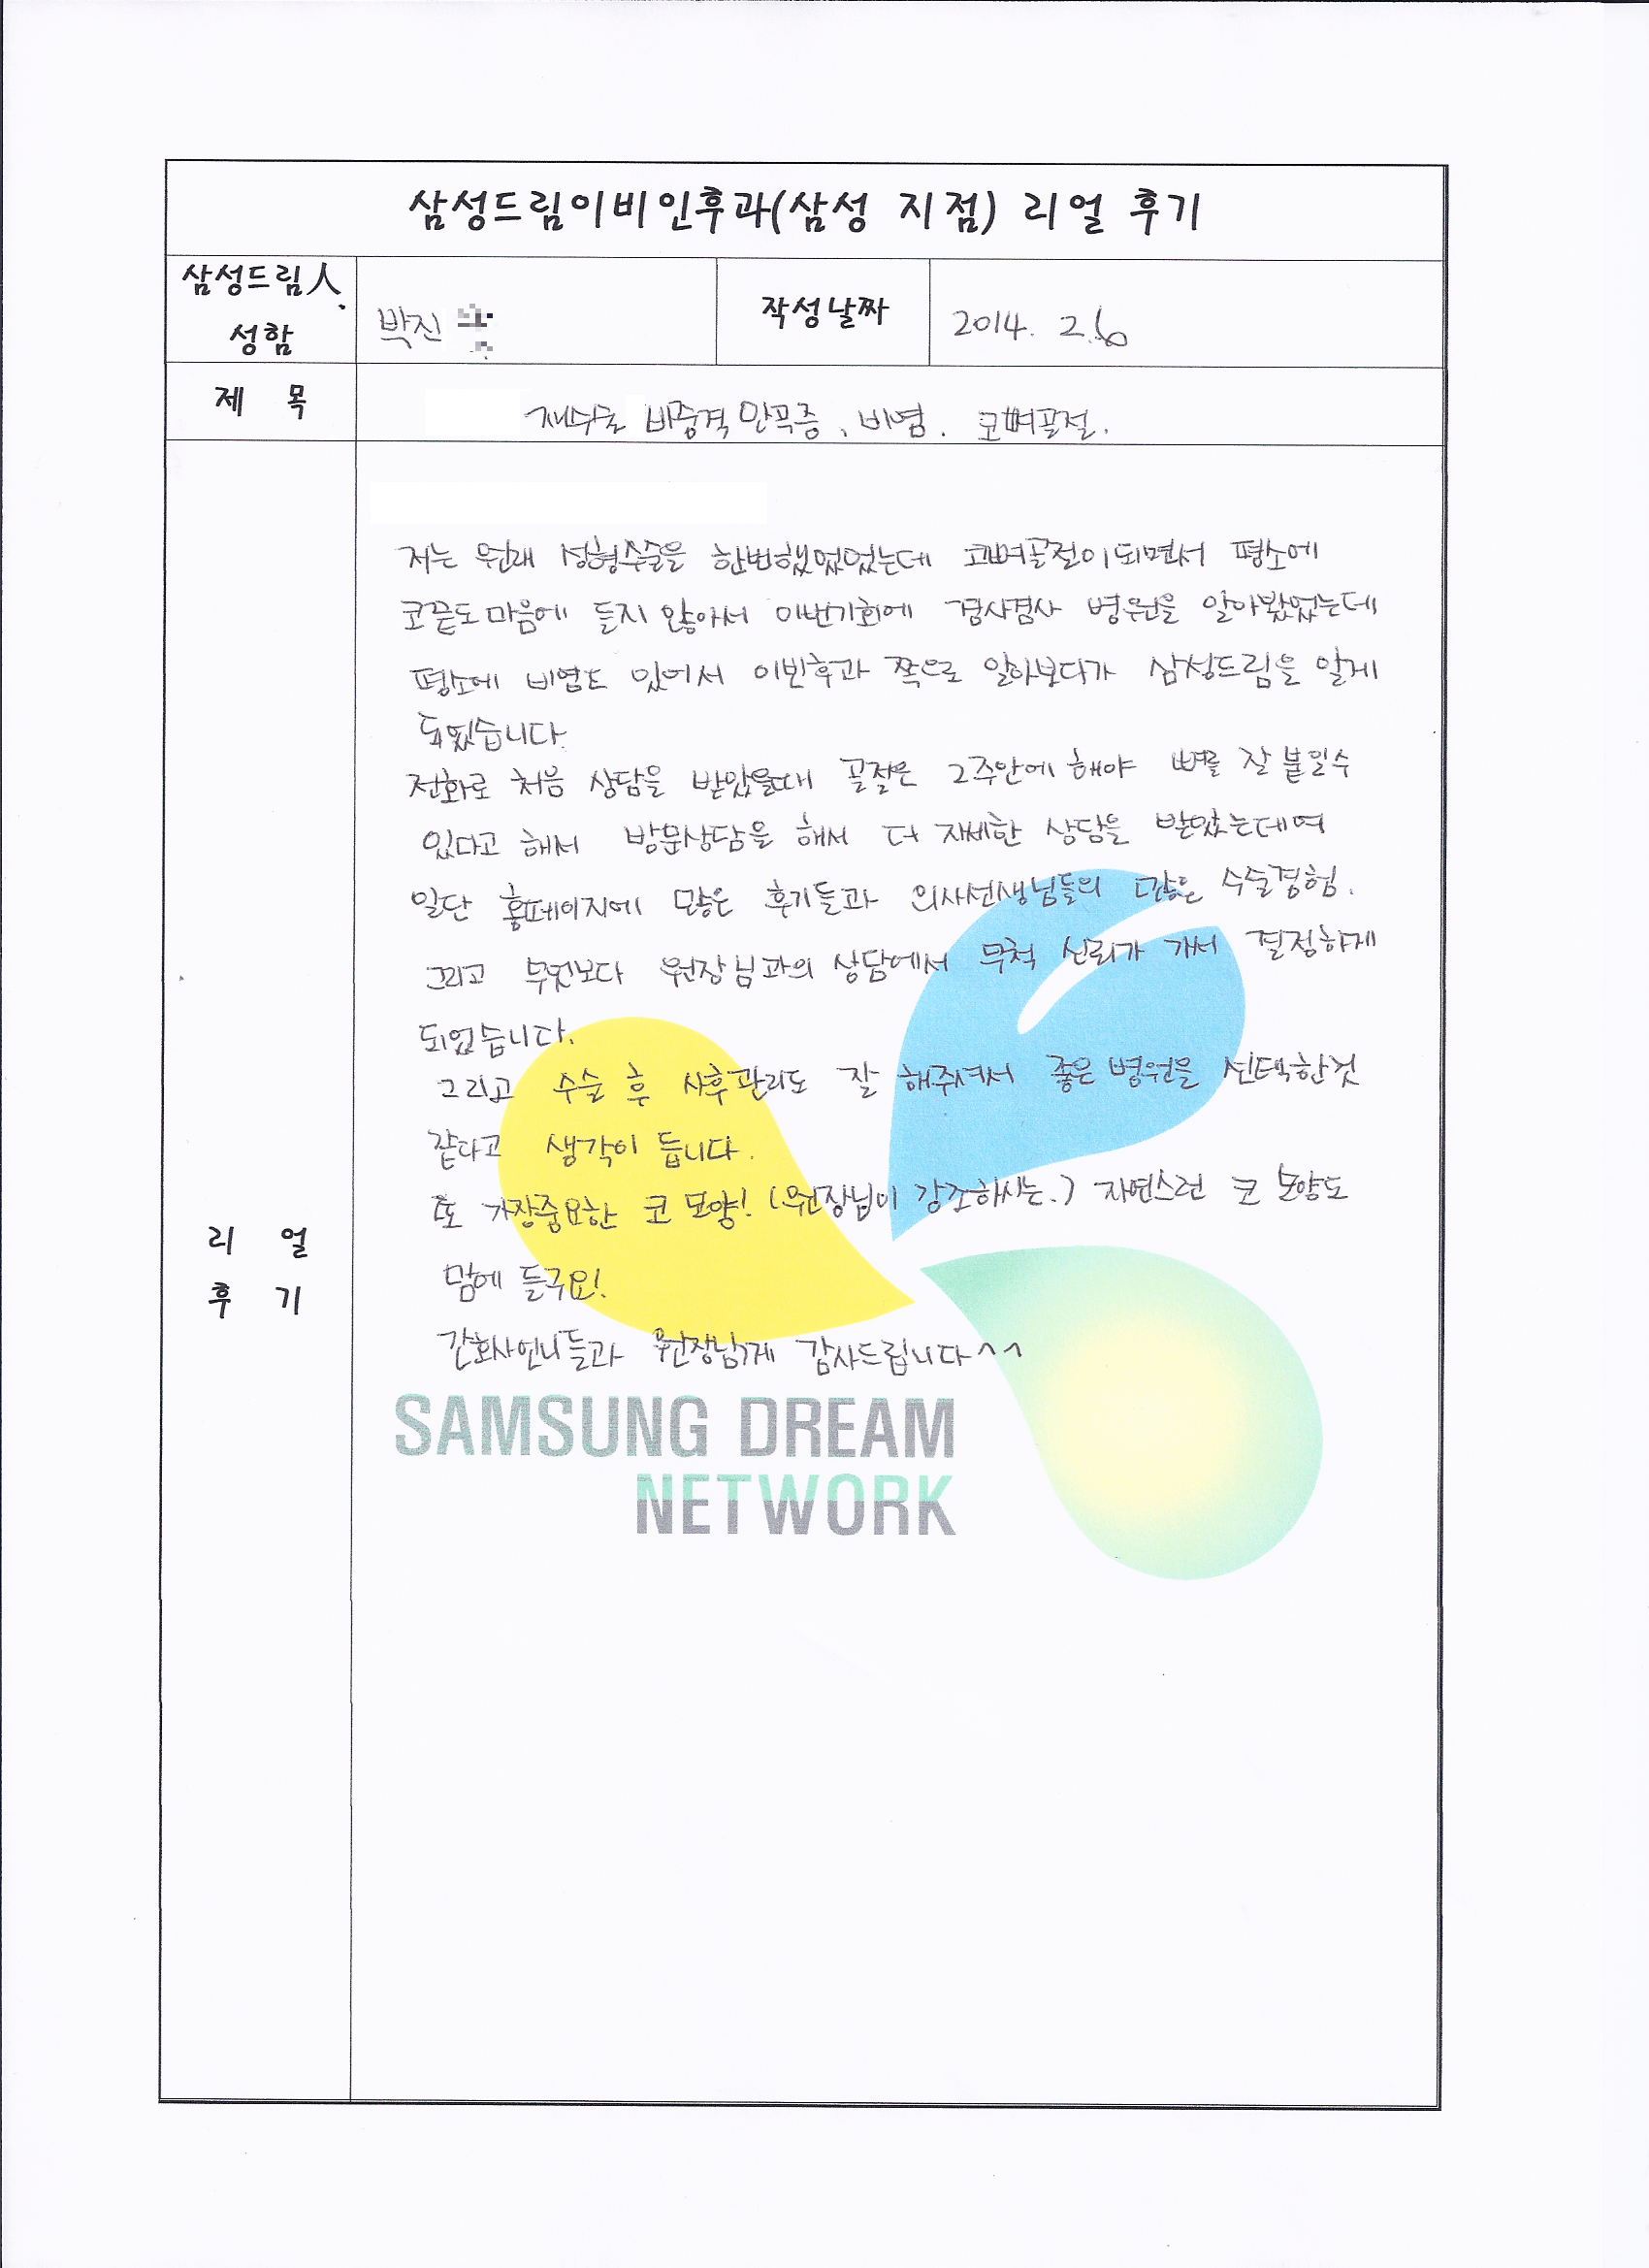 삼성드림이비인후과(삼성 지점) 리얼 후기
삼성드림人
성함
박진
작성날짜
2014. 2.6
제 목
재수술 비중격만곡증, 비염. 코뼈골절.
저는 원래 성형수술을 한번했었었는데 코뼈골절이되면서 평소에
코끝도 마음에 들지 않아서 이번기회에 겸사겸사 병원을 알아봤었는데
평소에 비염도 있어서 이빈후과 쪽으로 알아보다가 삼성드림을 알게
되었습니다.
전화로 처음 상담을 받았을때 골절은 2주안에 해야 뼈를 잘 붙일수
있다고 해서 방문상담을 해서 더 자세한 상담을 받았는데여
일단 홈페이지에 많은 후기들과 의사선생님들의 많은 수술경험.
그리고 무엇보다 원장님과의 상담에서 무척 신뢰가 가서 결정하게
되었습니다.
그리고 수술 후 사후관리도 잘 해주셔서 좋은 병원을 선택한것
같다고 생각이 듭니다.
또 가장중요한 코 모양! (원장님이 강조하시는.) 자연스런 코 모양도
맘에 들구요!
간호사언니들과 원장님게 감사드립니다^^
리 얼
후 기
SAMSUNG DREAM
NETWORK